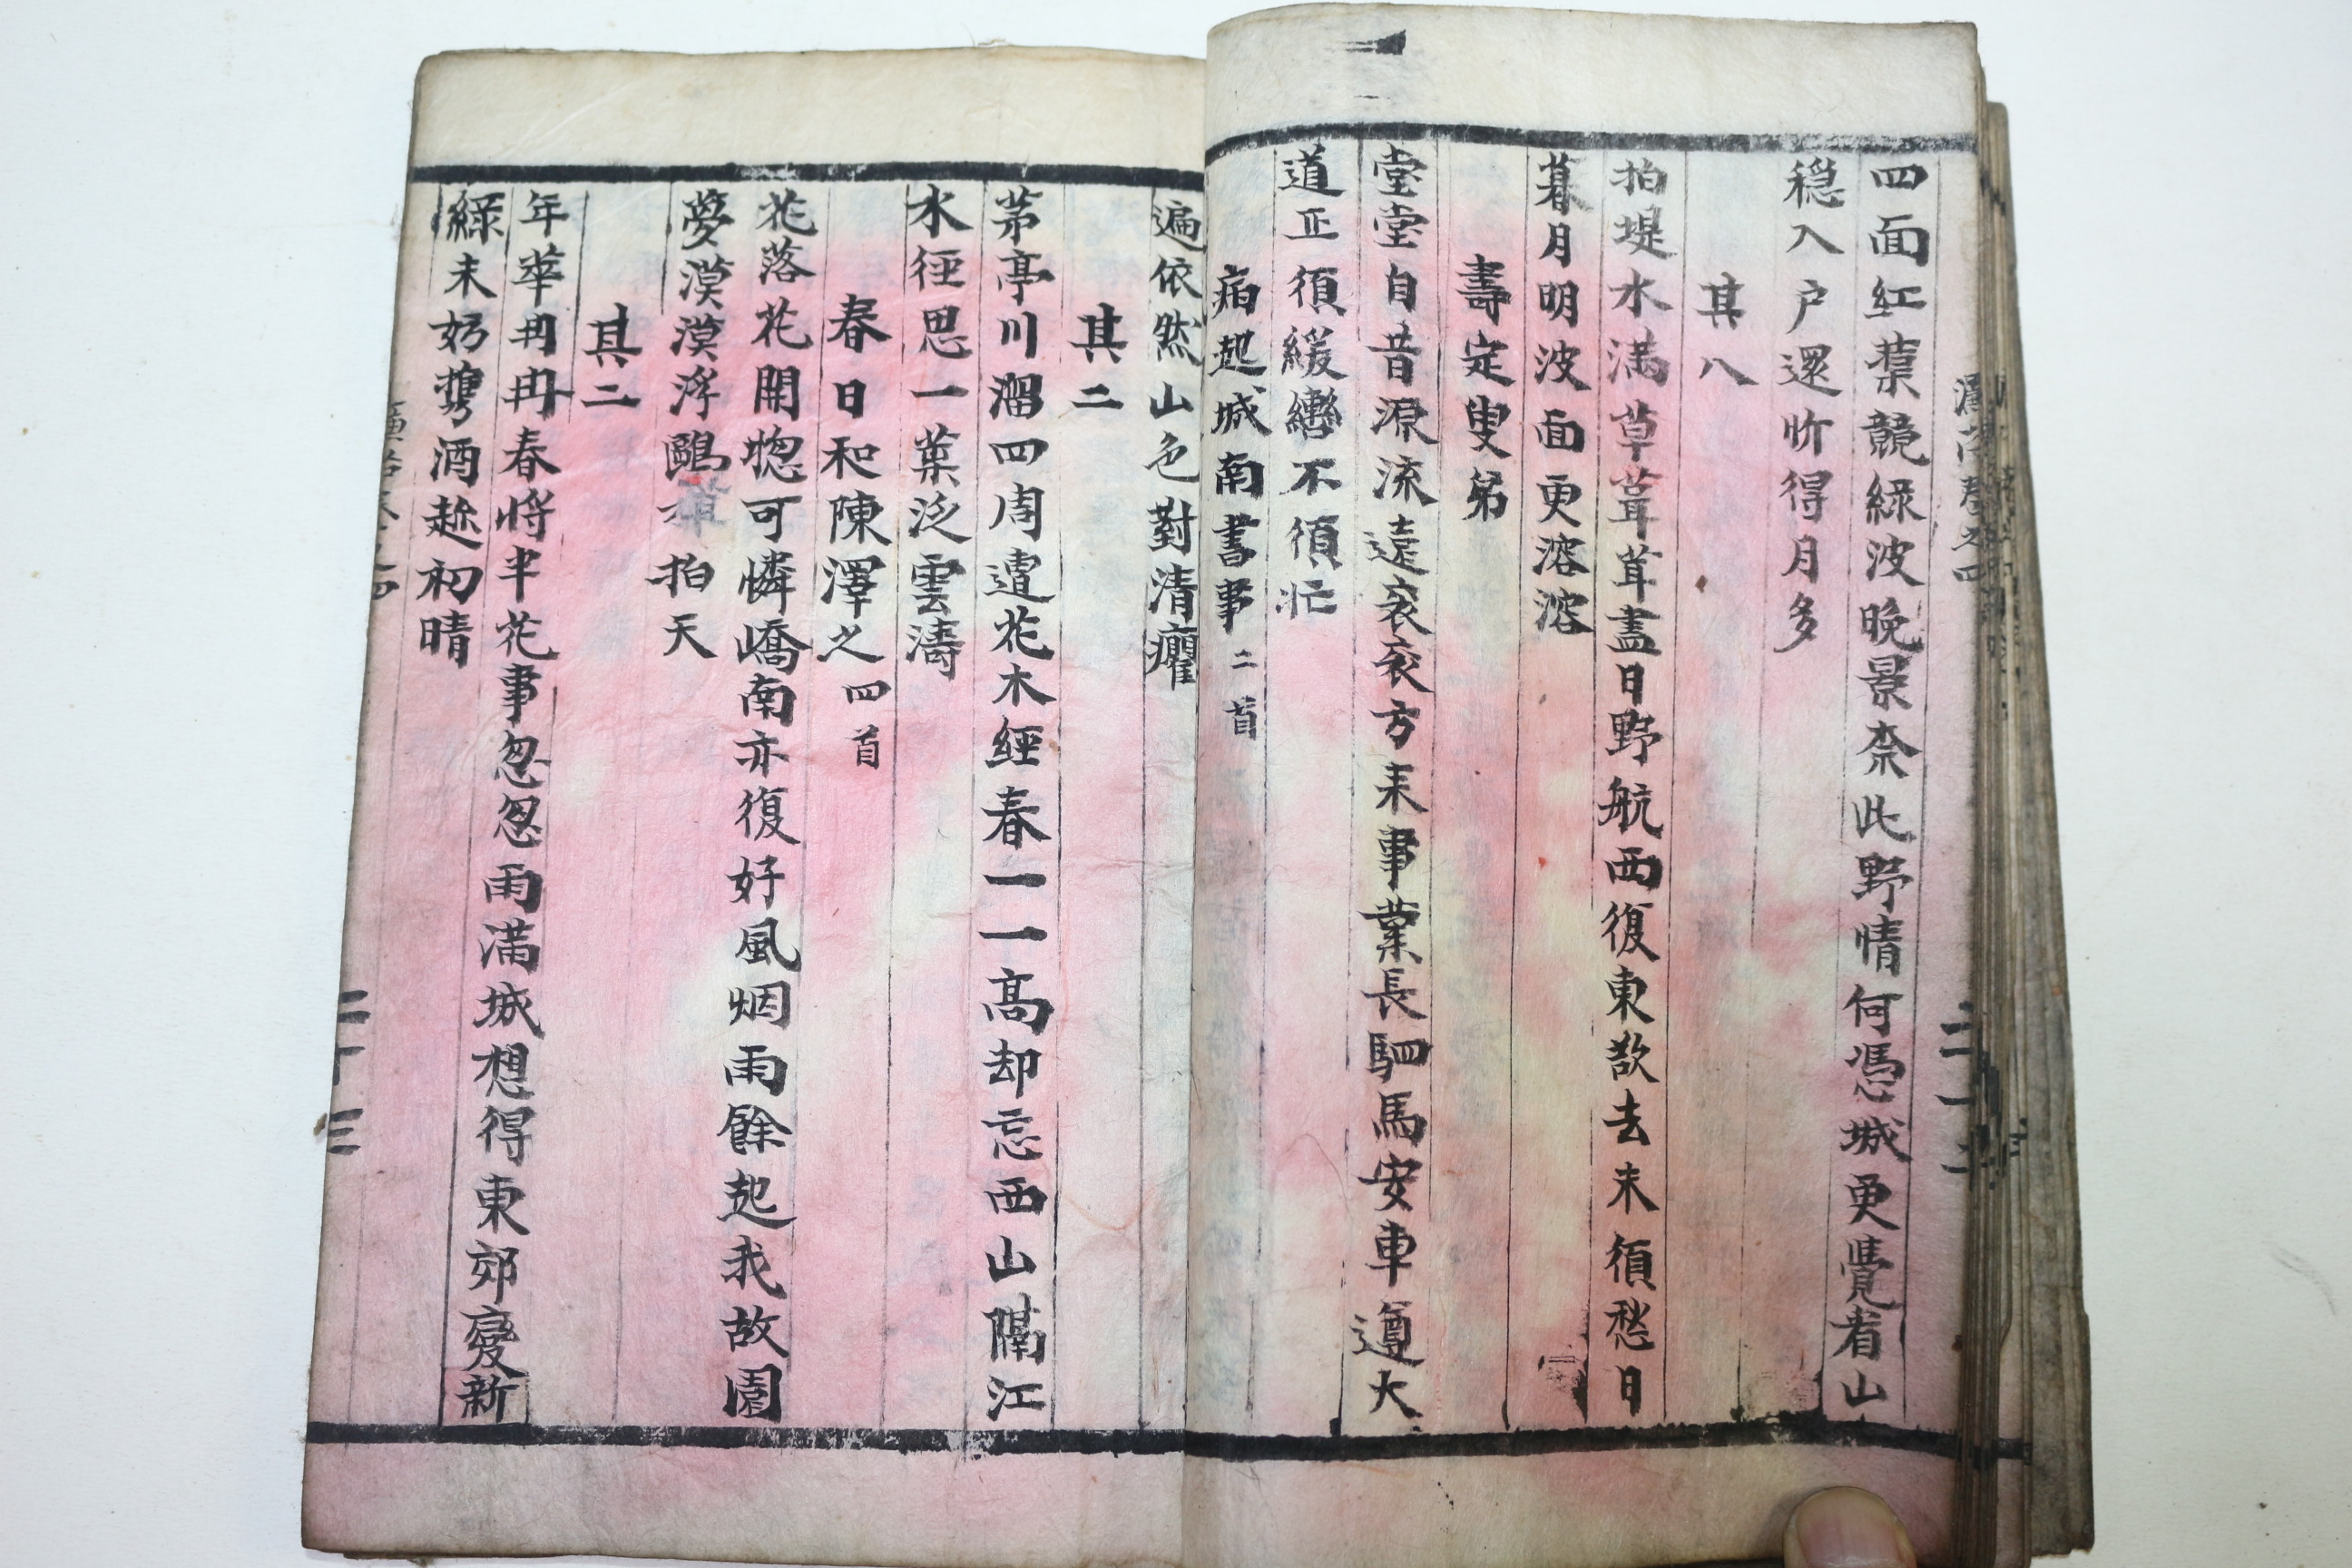 四面紅葉競緑波晩景柰此野情何憑城更覺看山
穏入户還忻得月多
其八
拍堤水满草茸茸盡日野航西復東欲去未須愁日
暮月明波面更溶溶
壽定叟弟
堂堂自昔源流遠衮衮方来事業長駟馬安車遵大
道正須緩轡不須忙
病起城南書事二首
遍依然山色對清癯
其二
茅亭川溜四周遭花木經春一一髙却忘西山隔江
水徑思一葉泛雲濤
春日和陳澤之四首
花落花開惚可憐嶠南亦復好風烟雨餘起我故園
夢漠漠浮鷗拍天
其二
年華冉冉春将半花事忽忽雨满城想得東郊變新
綠未妨携酒趁初晴
二十三